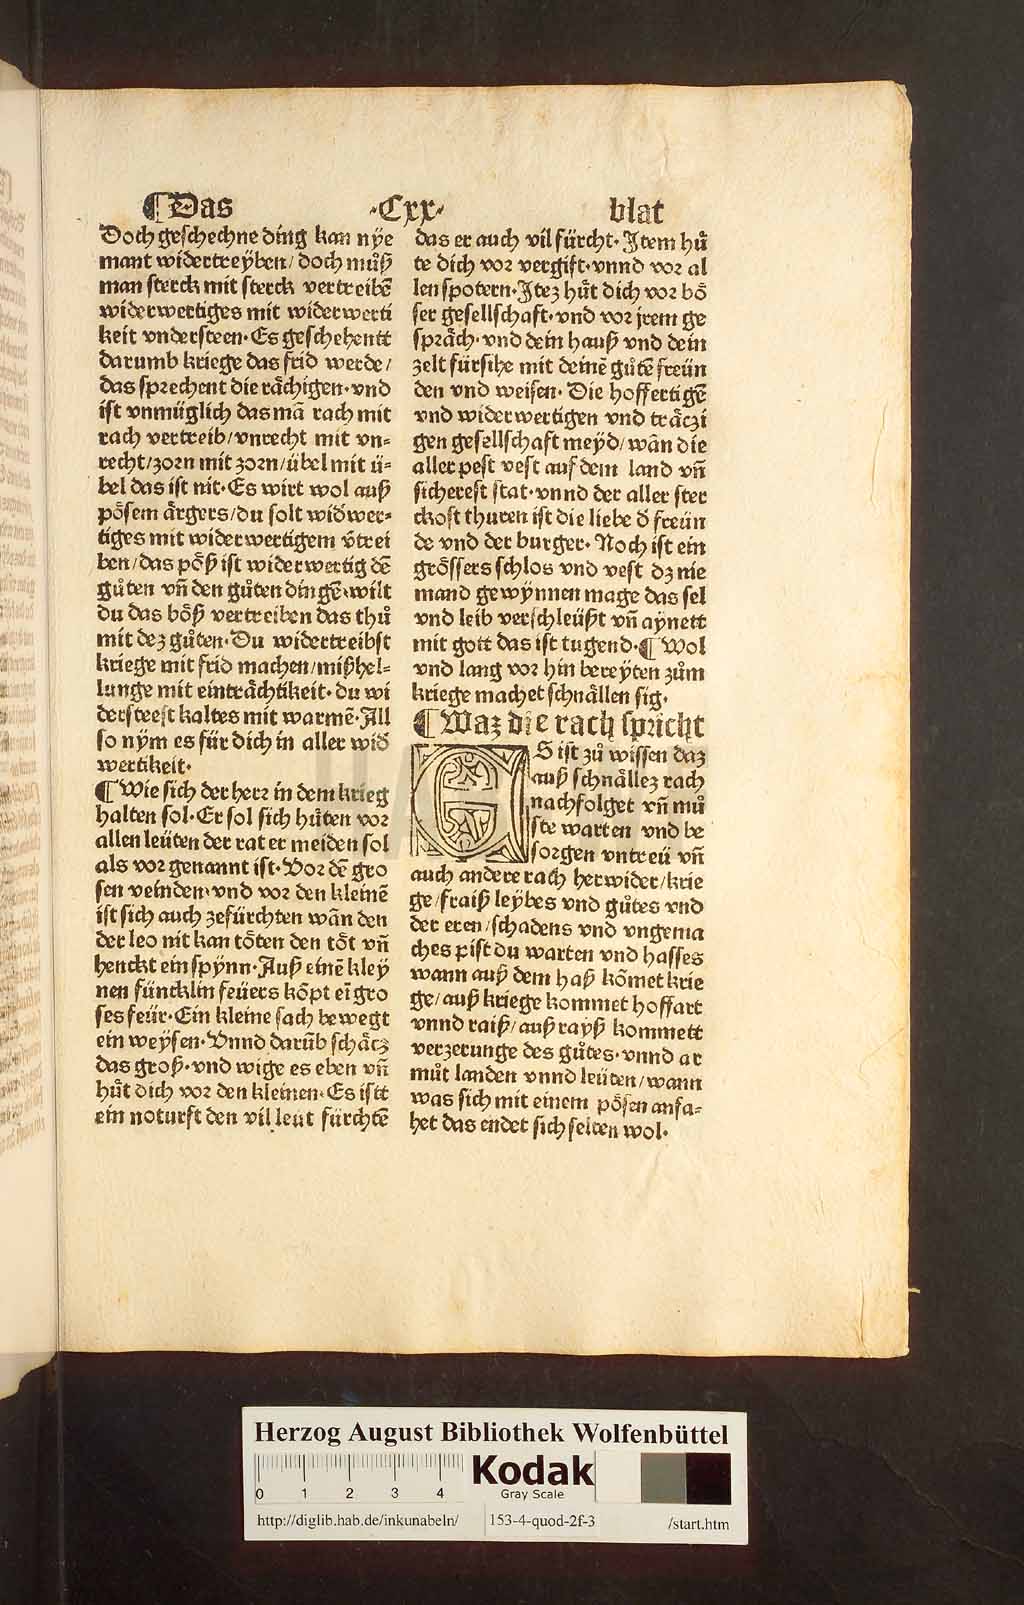 ¶ Das ·Cxx· blat
Doch geschechne ding kan nÿe
mant widertreÿben/ doch můß
man sterck mit sterck vertreibē
widerwertiges mit widerwerti
keit vndersteen· Es geschehentt
darumb kriege das frid werde/
das sprechent die rӓchigen· vnd
ist vnmüglich das mā rach mit
rach vertreib/ vnrecht mit vn⸗
recht/ zorn mit zorn/ übel mit ü⸗
bel das ist nit· Es wirt wol auß
pösem ärgers/ du solt wid̄wer⸗
tiges mit widerwertigem v̄trei
ben/ das pöß ist widerwertig dē
gůten vn̄ den gůten dingē· wilt
du das böß vertreiben das thů
mit dez gůten· Du widertreibst
kriege mit frid machen/ mißhel⸗
lunge mit einträchtikeit· du wi
dersteest kaltes mit warmē· All
so nÿm es für dich in aller wid̄
wertikeit·
¶ Wie sich der herr in dem krieg
halten sol· Er sol sich hůten vor
allen leüten der rat er meiden sol
als vor genannt ist· Vor dē gro
sen veinden· vnd vor den kleinē
ist sich auch zefürchten wān den
der leo nit kan töten den töt vn̄
henckt ein spÿnn· Auß einē kleÿ
nen füncklin feüers köpt eī gro
ses feür· Ein kleine sach bewegt
ein weÿsen· Vnnd darūb schäcz
das groß· vnd wige es eben vn̄
hůt dich vor den kleinen· Es istt
ein noturft den vil leüt fürchtē
das er auch vil fürcht· Item hů
te dich vor vergift· vnnd vor al
len spotern· Itez hůt dich vor bö
ser gesellschaft· vnd vor jrem ge
spräch· vnd dein hauß vnd dein
zelt fürsihe mit deinē gůtē freün
den vnd weisen· Die hoffertigē
vnd widerwertigen vnd träczi
gen gesellschaft meÿd/ wān die
aller pest vest auf dem land vn̄
sicherest stat· vnnd der aller ster
ckost thuren ist die liebe d̄ freün
de vnd der burger· Noch ist ein
grössers schlos vnd vest dz nie
mand gewÿnnen mage das sel
vnd leib verschleüßt vn̄ aÿnett
mit gott das ist tugend· ¶ Wol
vnd lang vor hin bereÿten zům
kriege machet schnällen sig·
¶ Waz die rach spricht
ES ist zů wissen daz
auß schnällez rach
nachfolget vn̄ mů
ste warten vnd be
sorgen vntreü vn̄
auch andere rach herwider/ krie
ge/ fraiß leÿbes vnd gůtes vnd
der eren/ schadens vnd vngema
ches pist du warten vnd hasses
wann auß dem haß kömet krie
ge/ auß kriege kommet hoffart
vnnd raiß/ auß rayß kommett
verzerunge des gůtes· vnnd ar
můt landen vnnd leüten/ wann
was sich mit einem pösen anfa⸗
het das endet sich selten wol·
HAB
Herzog August Bibliothek Wolfenbüttel
0 1 2 3 4
Kodak
Gray Scale
http://diglib.hab.de/inkunabeln/ 153-4-quod-2f-3 /start.htm